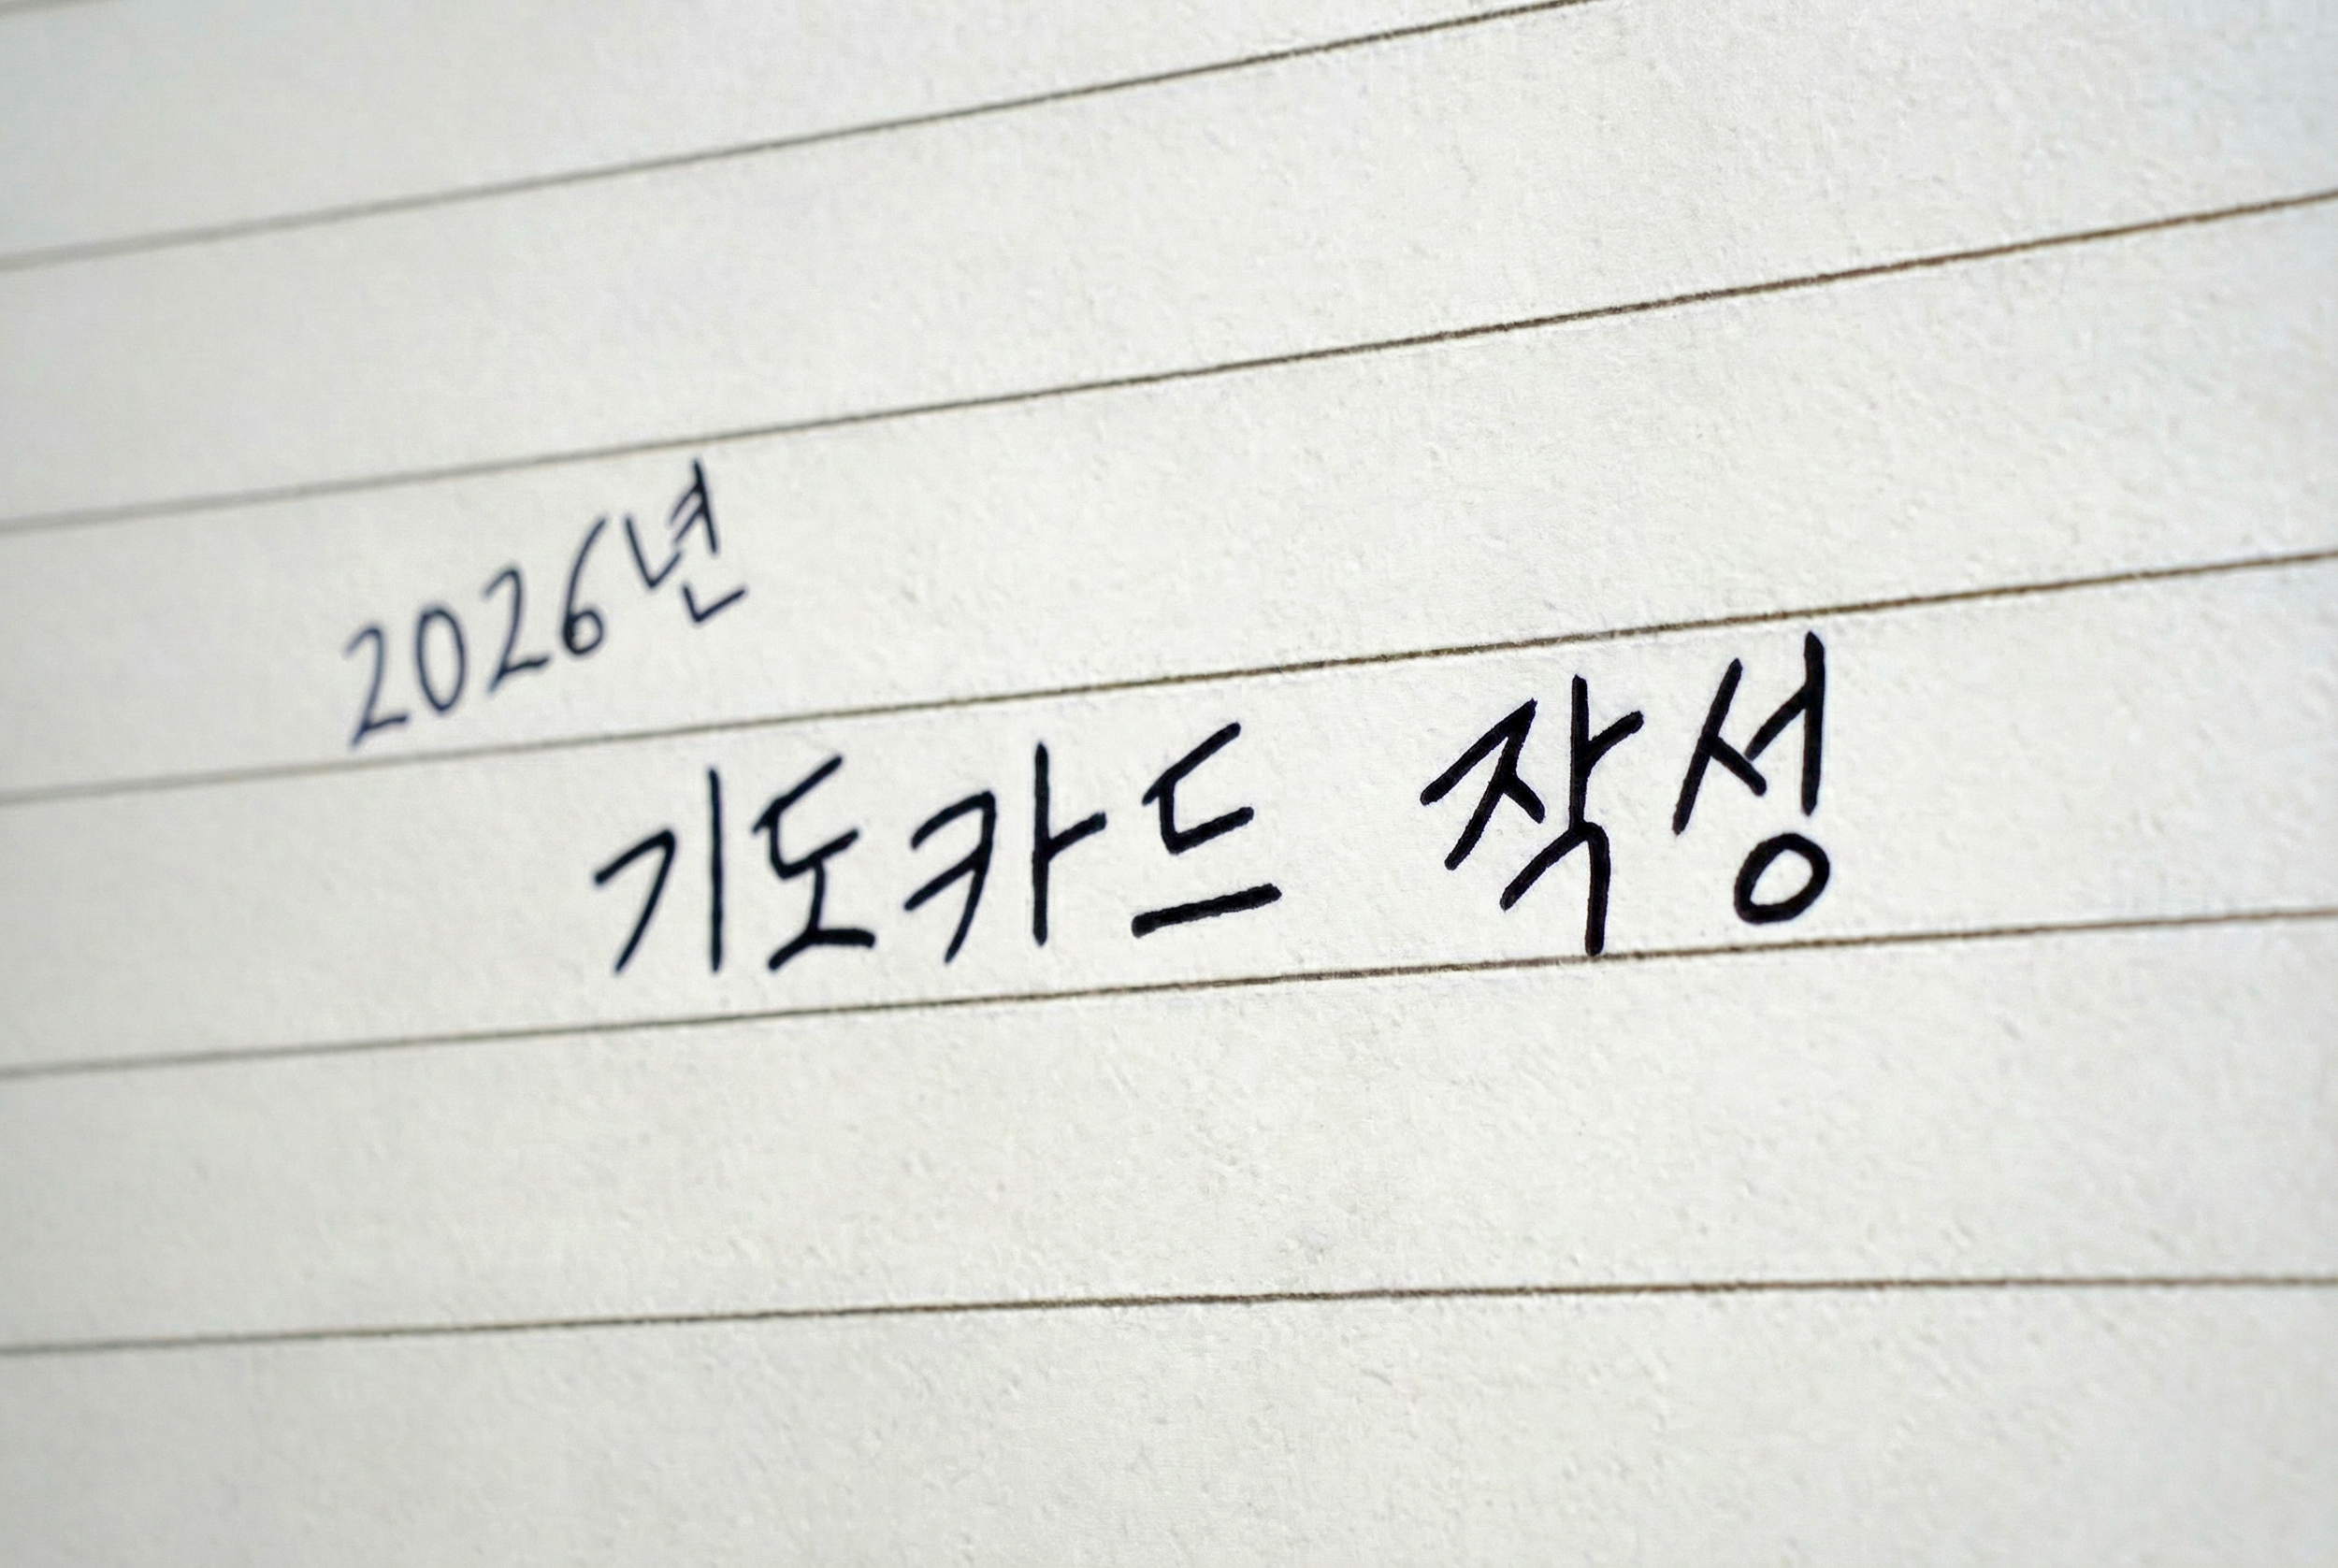 2026년
기도카드 작성